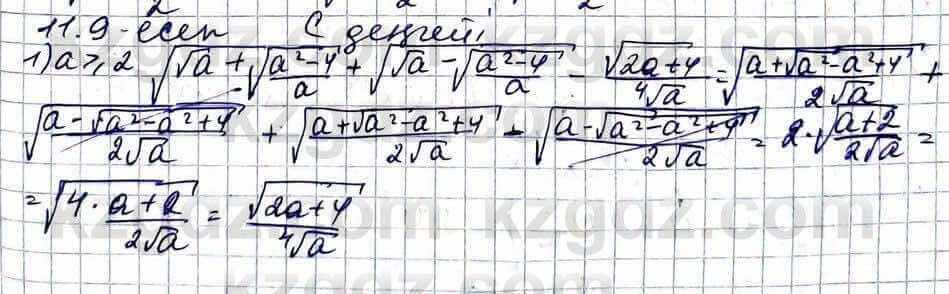 11.9-есеп C деңгейі
1) a ≥ 2 √(√a + √((a²-4)/a)) + √(√a - √((a²-4)/a)) - √(2a+4)/⁴√a = √((a+√(a²-a²+4))/(2√a)) +
√((a-√(a²-a²+4))/(2√a)) + √((a+√(a²-a²+4))/(2√a)) - √((a-√(a²-a²+4))/(2√a)) = 2·√((a+2)/(2√a)) =
= √(4·(a+2)/(2√a)) = √(2a+4)/⁴√a
kzgoz.com kzgoz.com